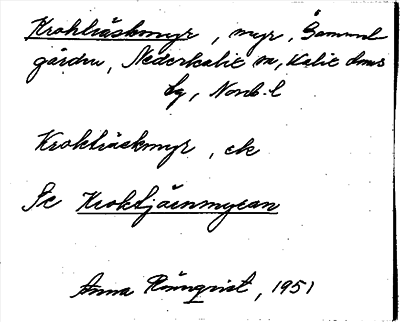 Krokträskmyr, myr, Gammel
gården, Nederkalix sn, Kalix dms
bg, Nonb. l
Krokträskmyr, ek
Se Kroktjärnmyran
Anna Rönnqvist, 1951